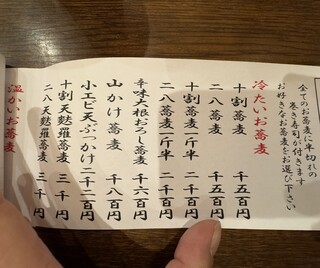 全てのお蕎麦に半切れの
巻き寿司が付きます
お好きなお蕎麦をお選び下さい
冷たいお蕎麦
十割蕎麦 千五百円
二八蕎麦 千五百円
十割蕎麦一斤半 二千百円
二八蕎麦一斤半 二千百円
辛味大根おろし蕎麦 千六百円
山かけ蕎麦 千八百円
小エビ天ぶっかけ 二千二百円
十割天麩羅蕎麦 三千円
二八天麩羅蕎麦 三千円
温かいお蕎麦